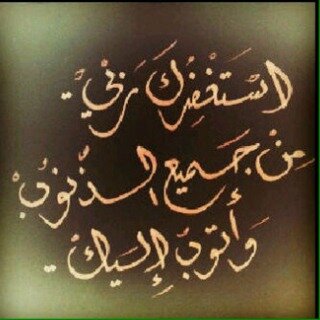 استغفرك ربي
من جميع الذنوب
وأتوب إليك